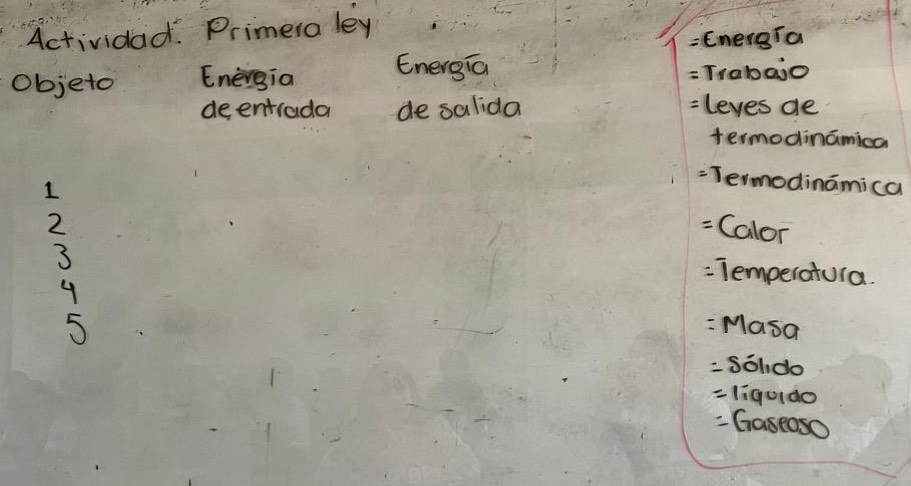 Actividad: Primera ley
Objeto Energia de entrada Energía de salida
1
2
3
4
5
=Energía
=Trabajo
=leyes de
termodinámica
=Termodinámica
=Calor
=Temperatura.
=Masa
=Sólido
=líquido
=Gaseoso